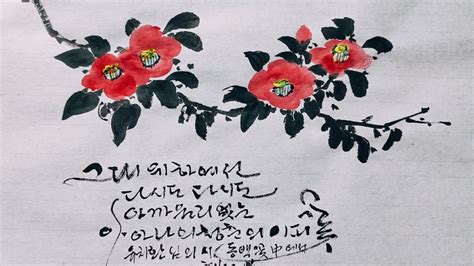 그대 위하여선
다시도 다시도
아까울리 없는
아아 나의 청춘의 이 피꽃
유치환 님의 시 동백꽃 中에서